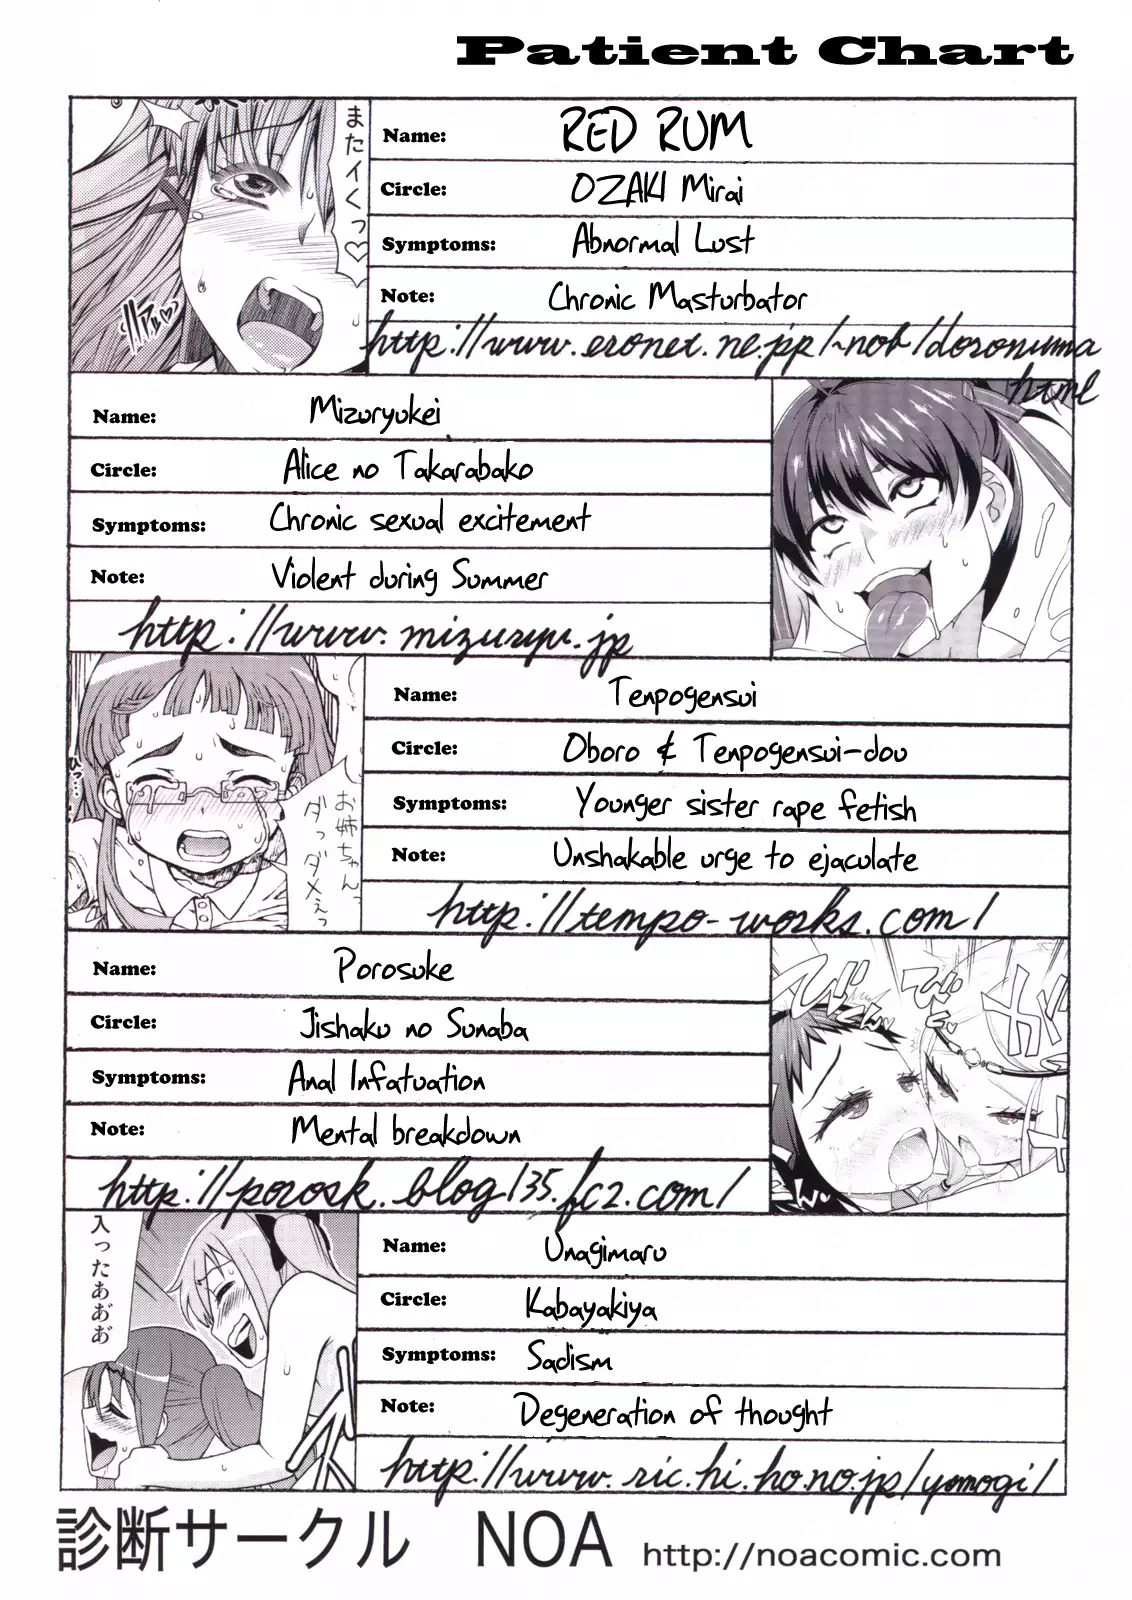 Patient Chart
またイくっ♡
Name: RED RUM
Circle: OZAKI Mirai
Symptoms: Abnormal Lust
Note: Chronic Masturbator
http://www.eronet.ne.jp/~nob/doronuma
html
Name: Mizuryukei
Circle: Alice no Takarabako
Symptoms: Chronic sexual excitement
Note: Violent during Summer
http://www.mizuryu.jp
お姉ちゃんっ
ダっダメぇっ
Name: Tenpogensui
Circle: Oboro & Tenpogensui-dou
Symptoms: Younger sister rape fetish
Note: Unshakable urge to ejaculate
http://tempo-works.com/
Name: Porosuke
Circle: Jishaku no Sunaba
Symptoms: Anal Infatuation
Note: Mental breakdown
http://porosk.blog135.fc2.com/
入ったあぢぢ
Name: Unagimaru
Circle: Kabayakiya
Symptoms: Sadism
Note: Degeneration of thought
http://www.ric.hi.ho.no.jp/yomogi/
診断サークル NOA http://noacomic.com